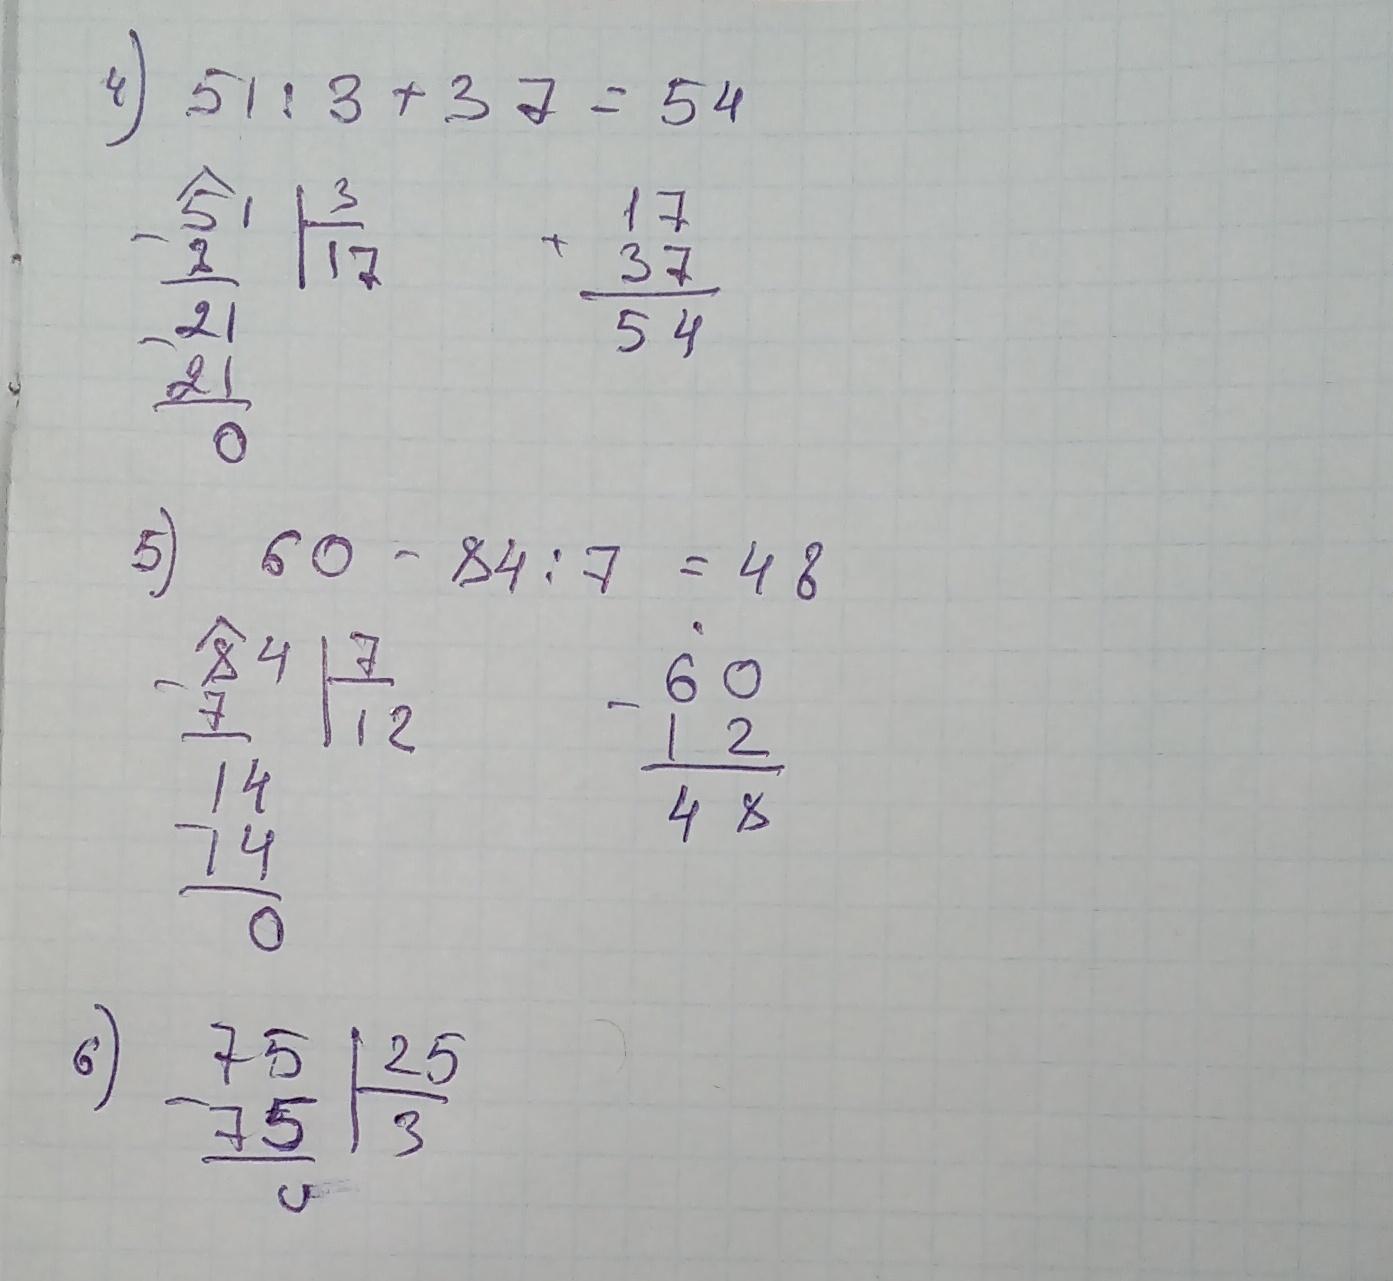 4) 51 : 3 + 37 = 54
- 51 | 3
2 | 17
- 21
21
0
+ 17
37
54
5) 60 - 84 : 7 = 48
- 84 | 7
7 | 12
14
- 14
0
- 60
12
48
6) 75 | 25
- 75 | 3
0